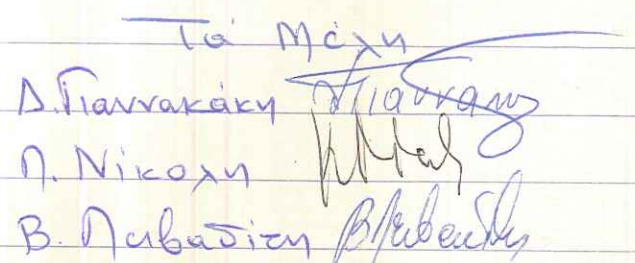 Τα Μέλη
Δ. Γιαννακάκη
Π. Νίκολη
Β. Λειβαδίτη